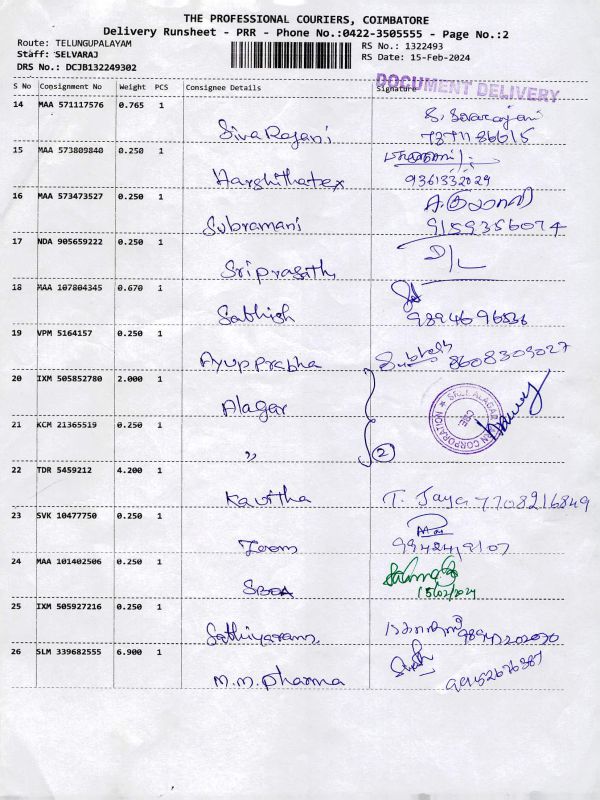 THE PROFESSIONAL COURIERS, COIMBATORE
Delivery Runsheet - PRR - Phone No.:0422-3505555 - Page No.:2
Route: TELUNGUPALAYAM
RS No.: 1322493
Staff: SELVARAJ
RS Date: 15-Feb-2024
DRS No.: DCJB132249302
DOCUMENT DELIVERY
S No Consignment No Weight PCS Consignee Details Signature
14 MAA 571117576 0.765 1 Siva Rajani
15 MAA 573809840 0.250 1 Harshithatex
9361332029
16 MAA 573473527 0.250 1 Subramani
9159356074
17 NDA 905659222 0.250 1 Sriprasath D/L
18 MAA 107804345 0.670 1 Sathish
19 VPM 5164157 0.250 1 Ayupprabha 8608309027
20 IXM 505852780 2.000 1 Alagar
21 KCM 21365519 0.250 1 " 2
22 TDR 5459212 4.200 1 Kavitha T. Jaya 7708216849
23 SVK 10477750 0.250 1 Zoom
24 MAA 101402506 0.250 1 SBOA
15/02/2024
25 IXM 505927216 0.250 1
26 SLM 339682555 6.900 1 M.M.Pharma